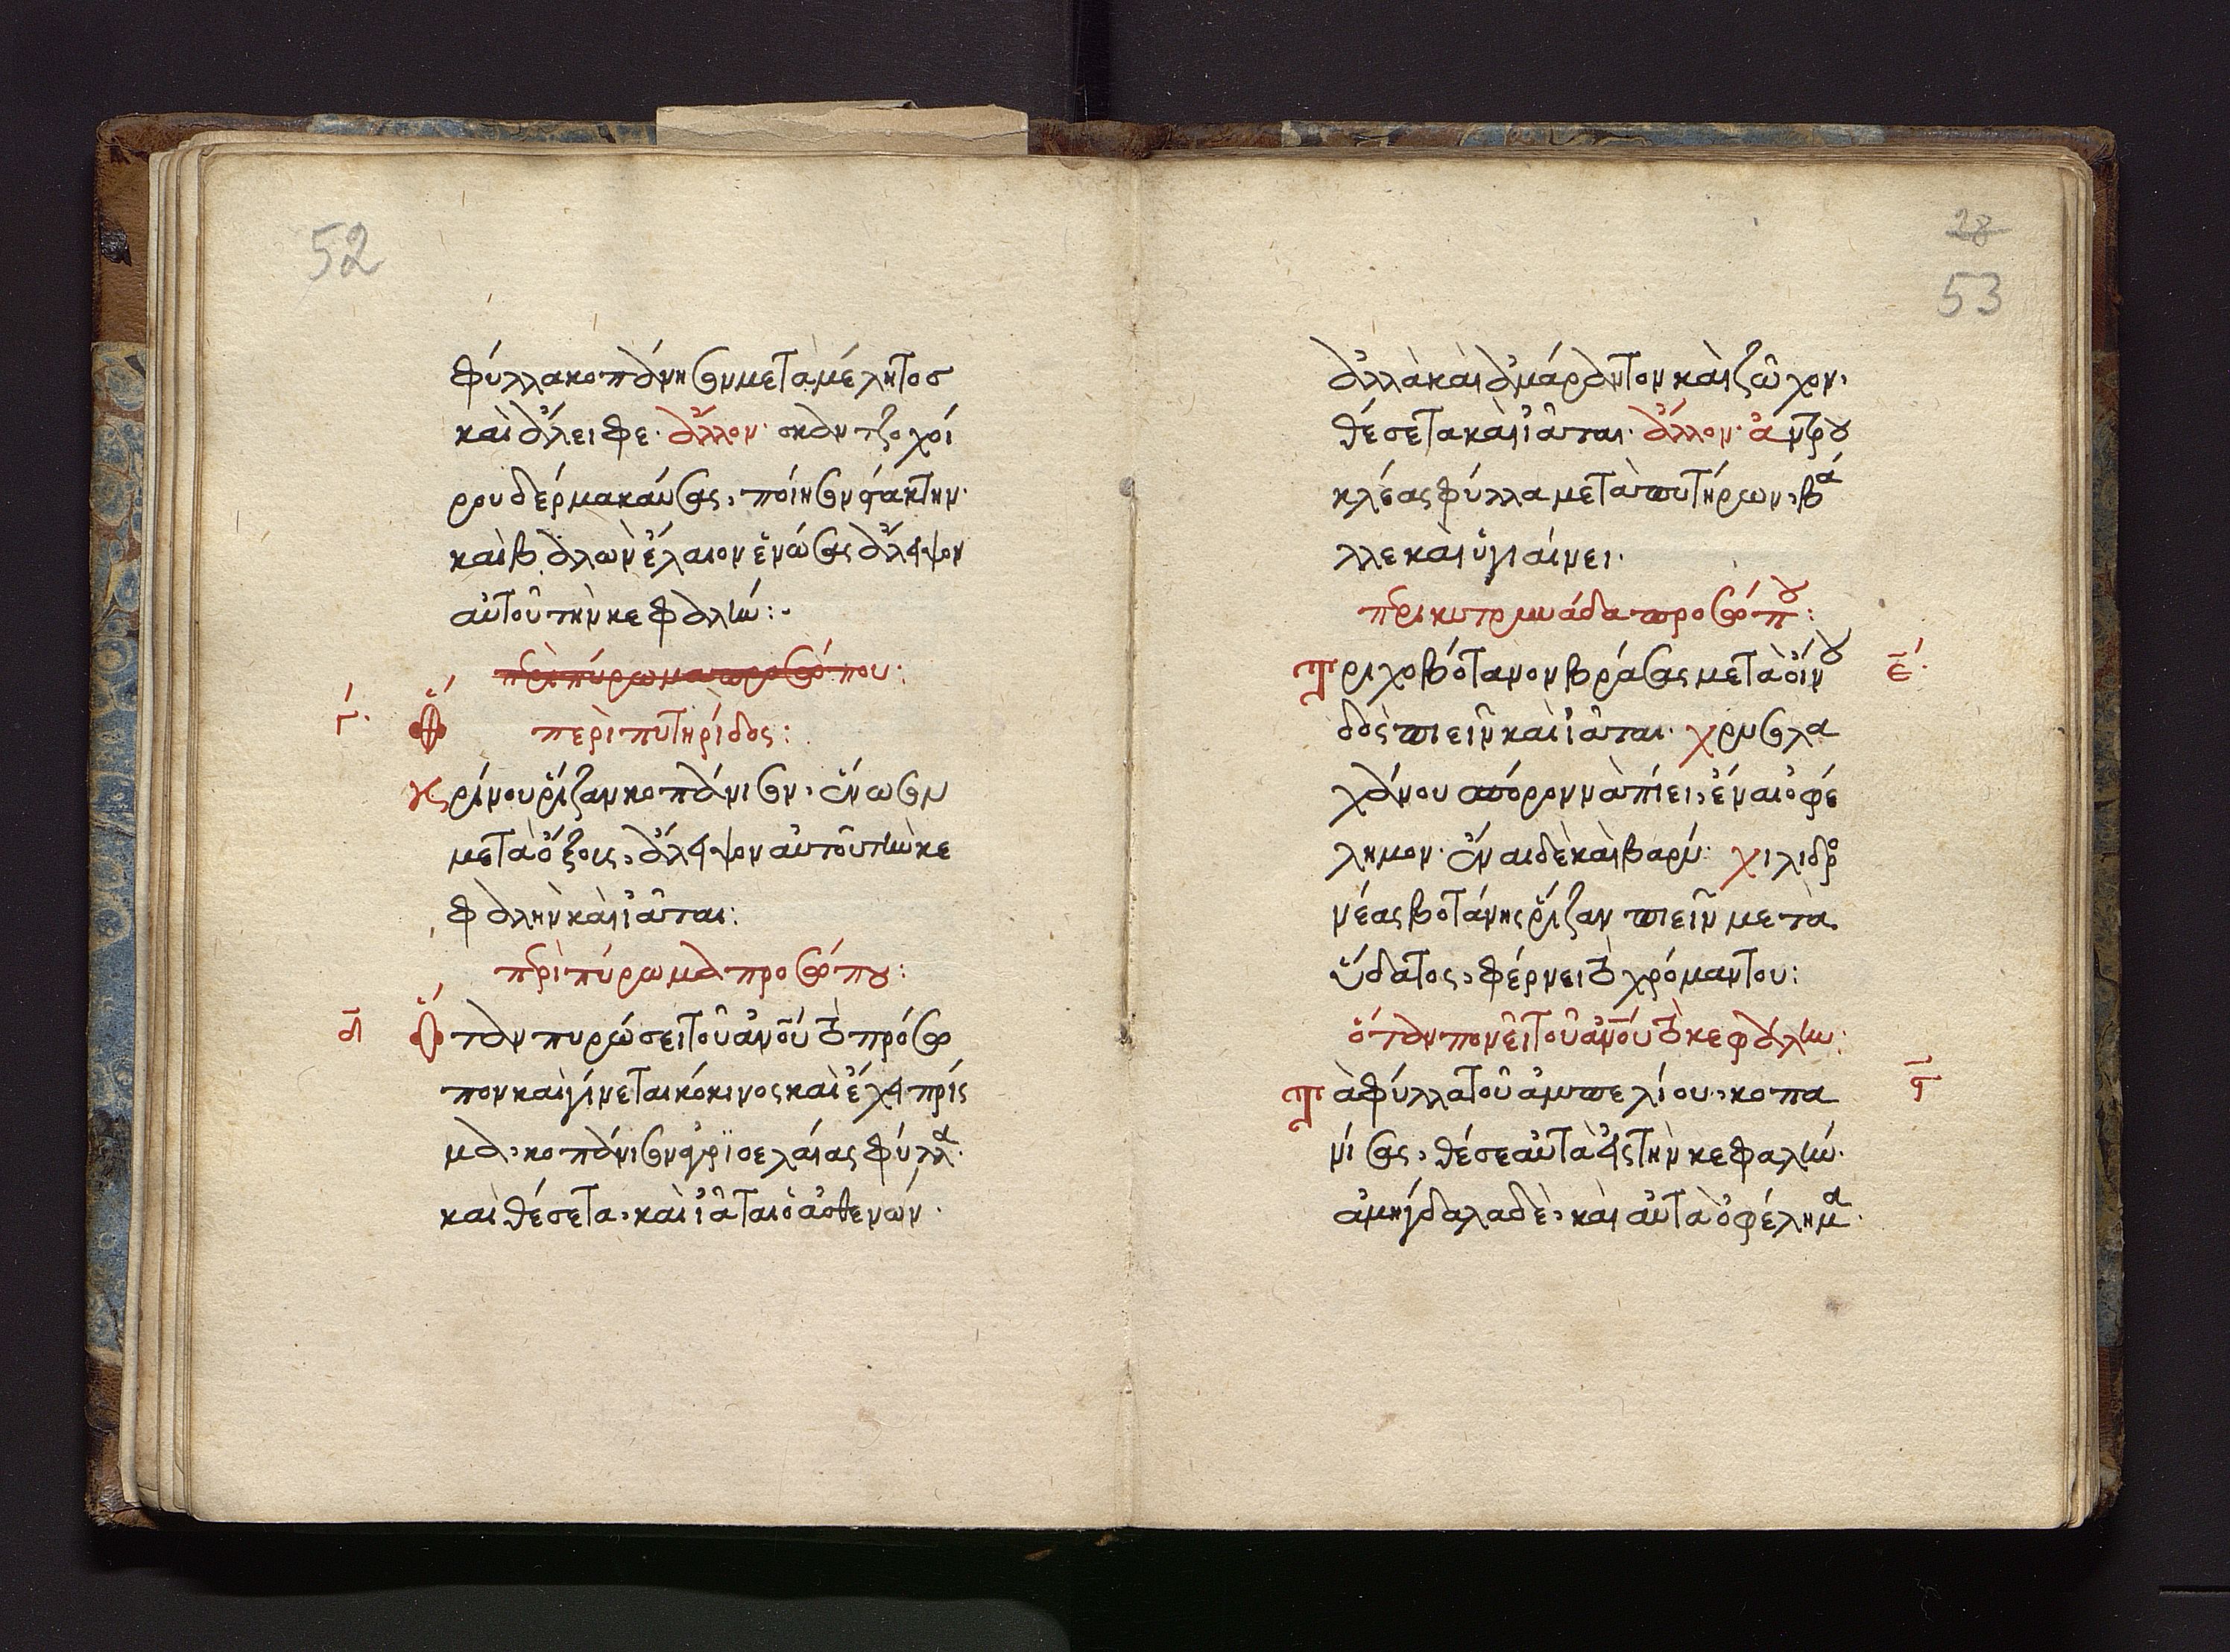 52
φύλλα κοπάνησον μετὰ μέλητος
καὶ ἄλειφε· ἄλλον· σκαντζοχοί
ρου δέρμα καύσας, ποίησον στάκτην·
καὶ βαλὼν ἔλαιον ἑνώσας ἄλειψον
αὐτοῦ τὴν κεφαλήν:
περὶ πύρωμα προσώπου:
γ΄.
περὶ πυτηρίδος:
κρίνου ῥίζαν κοπάνισον, ἕνωσον
μετὰ ὄξους, ἄλειψον αὐτοῦ τὴν κε
φαλὴν καὶ ἰᾶται:
περὶ πύρωμα προσώπου:
δ
Ὅταν πυρώσει τοῦ ἀνου τὸ πρόσω
πον καὶ γίνεται κόκινος καὶ ἔχει πρίς
μα, κοπάνισον ἀγρϊοελαίας φύλλα·
καὶ θέσε τα, καὶ ἰᾶται ὁ ἀσθενών·
28
53
ἀλλὰ καὶ ἀμάραντον καὶ ζῶχον,
θέσε τα καὶ ἰᾶται· ἄλλον· ἀντρου
κλέας φύλλα μετὰ πυτήρων, βά
λλε καὶ ὑγιαίνει·
περι κιτρινάδα προσώπου:
ε΄.
Τριχοβότανον βράσας μετὰ οἴνου
δὸς πιεῖν καὶ ἰᾶται· χρυσολα
χάνου σπόρον νὰ πίει, ἔναι οφέ
λημον· ἔναι δὲ καὶ βαρύ: χιλιδο
νέας βοτάνης ῥίζαν πιεῖν μετὰ
ὕδατος, φέρνει τὸ χρόμαν του:
ὅταν πονεῖ τοῦ ἀνου τὸ κεφάλην:
ϛ
Τὰ φύλλα τοῦ ἀμπελίου, κοπα
νίσας, θέσε αὐτὰ εἰς τὴν κεφαλήν·
ἀμηγδαλα δὲ, καὶ αὐτὰ ὀφέλημα·